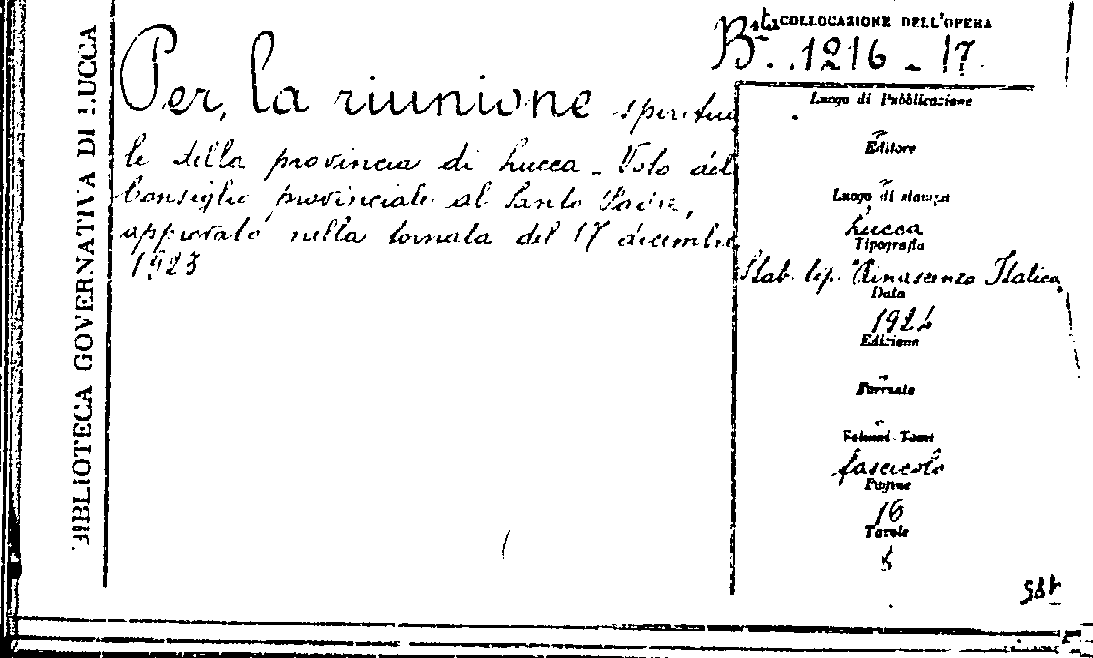 BIBLIOTECA GOVERNATIVA DI LUCCA
COLLOCAZIONE DELL'OPERA
B.ta 1216 - 17
Per, la riunione spiritua
le della provincia di Lucca - Voto del
Consiglio provinciale al Santo Padre,
approvato nella tornata del 17 dicembre
1923
Luogo di Pubblicazione
Editore
Luogo di stampa
Lucca
Tipografia
Stab. tip. "Rinascenza Italica"
Data
1924
Edizione
Formato
Volumi-Tomi
fascicolo
Pagine
16
Tavole